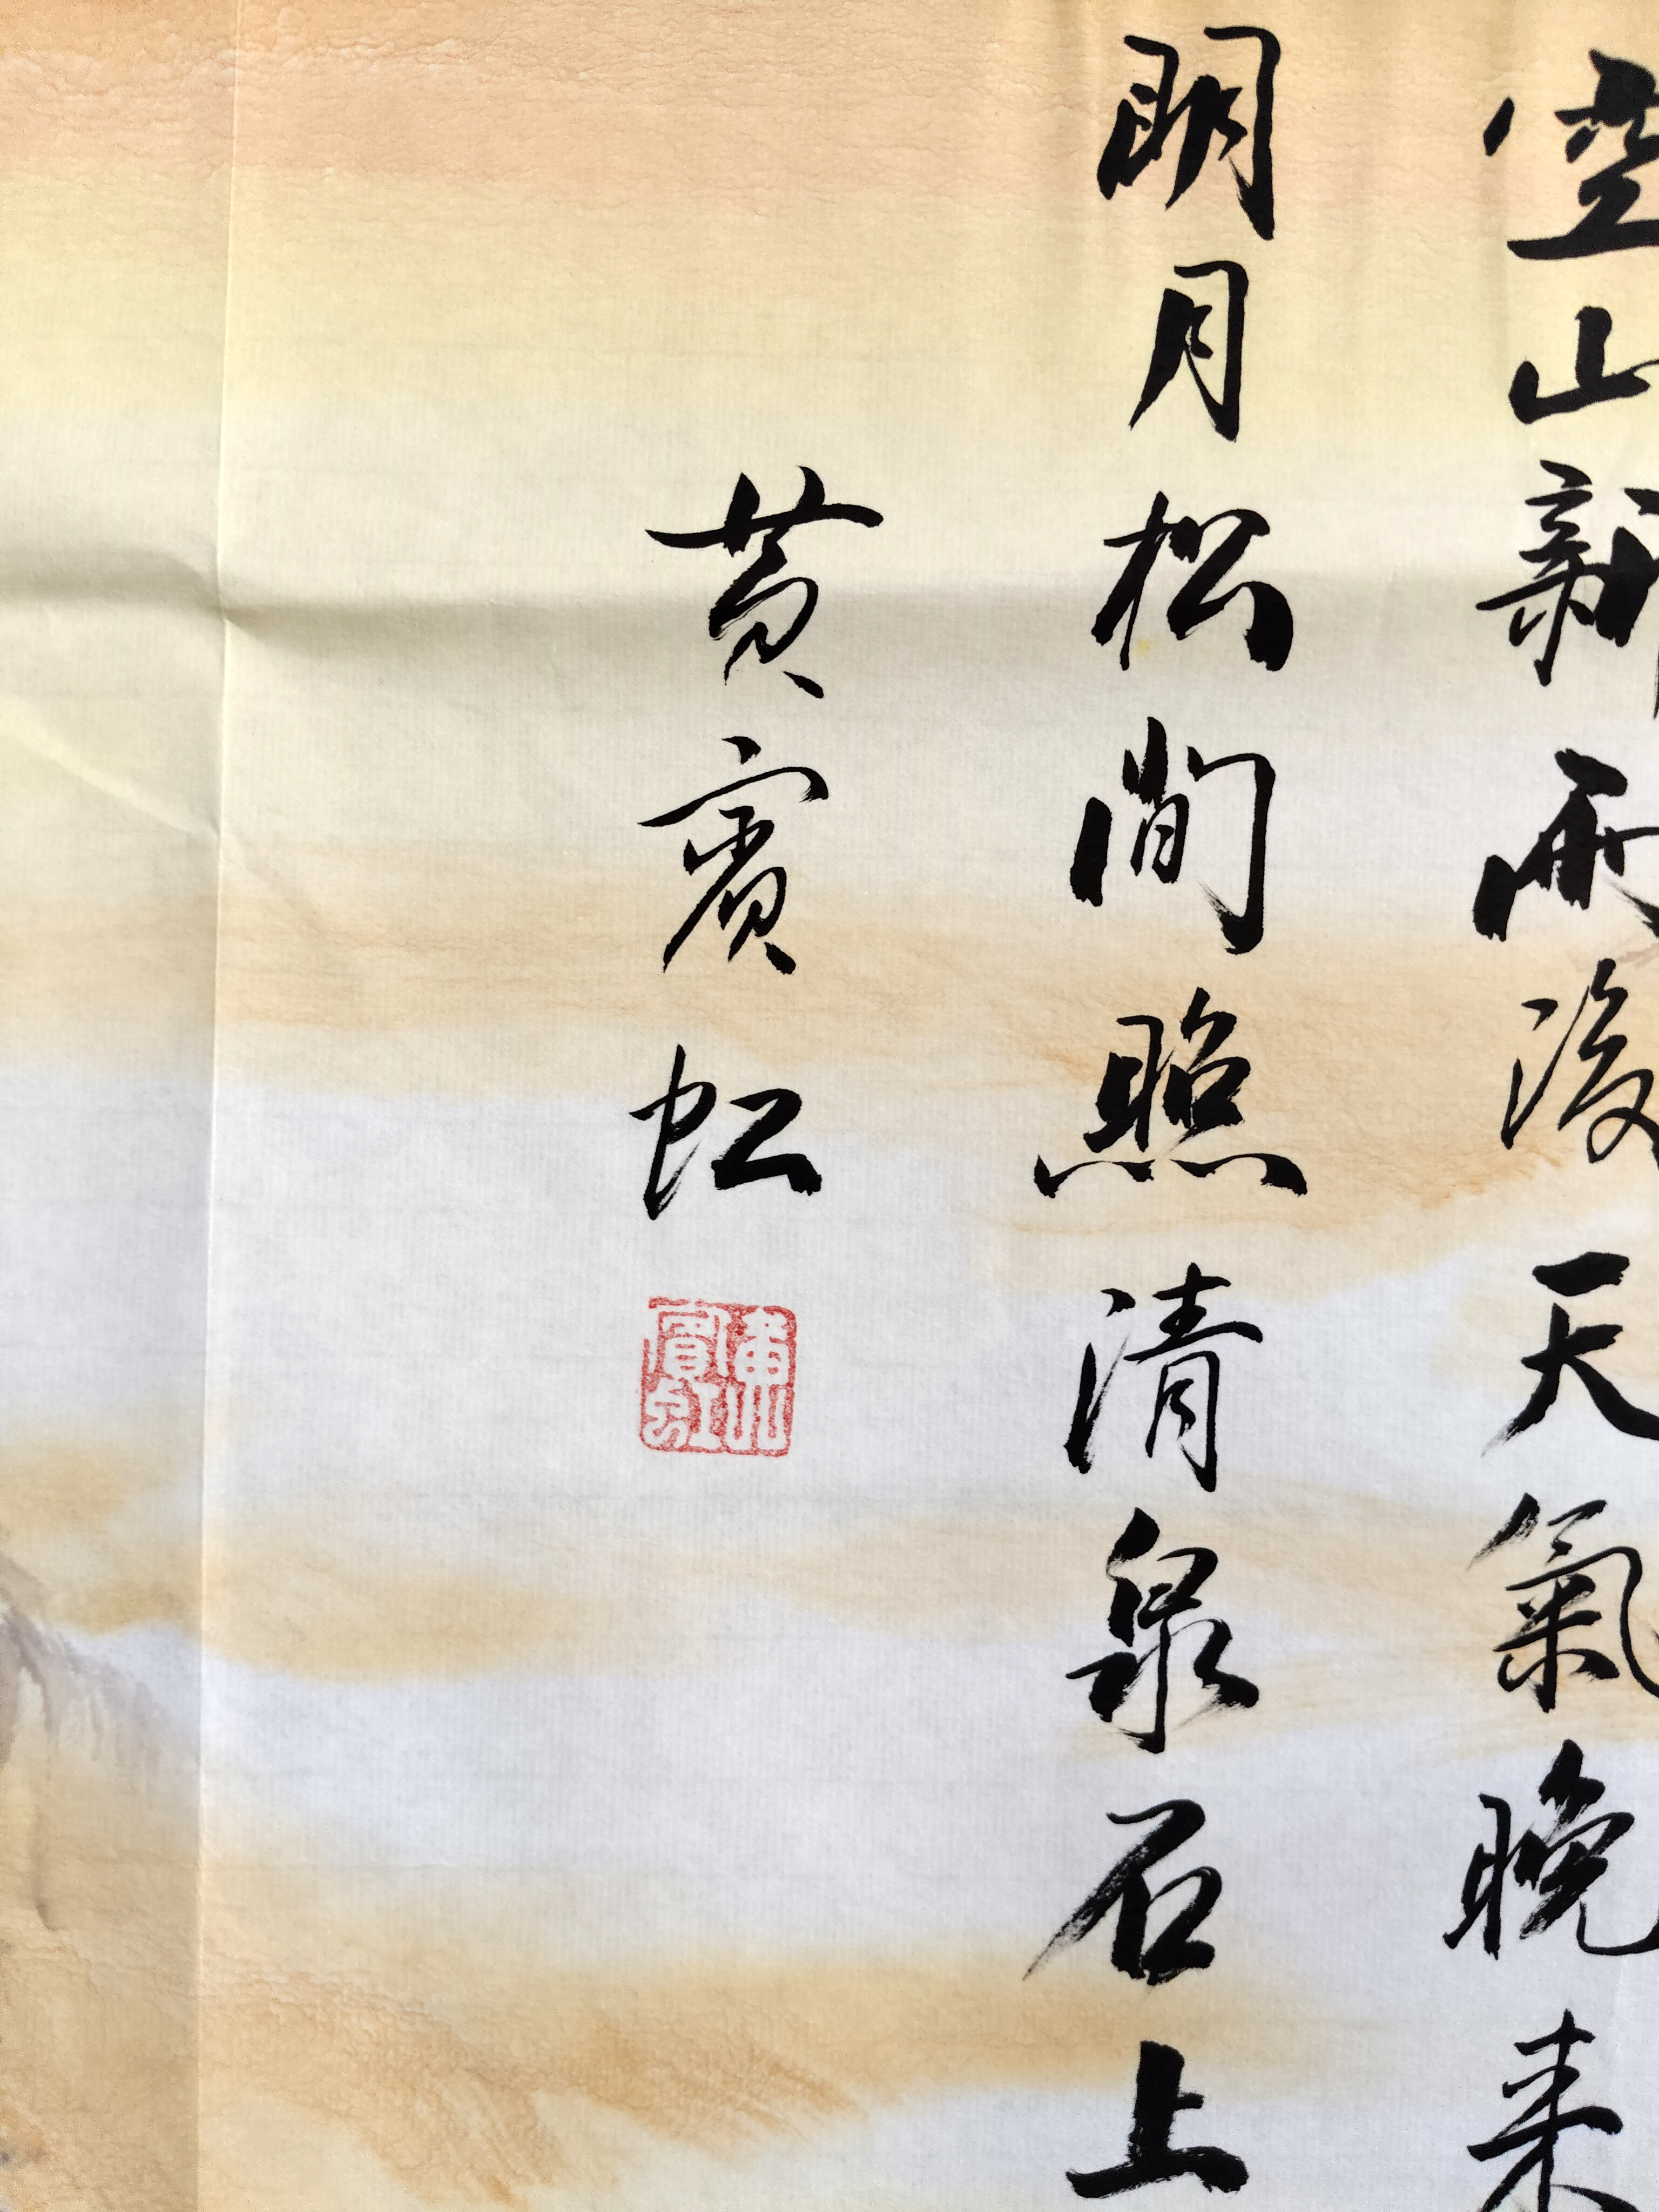 空山新雨後天氣晚来
明月松間照清泉石上
黄賓虹
黄山賓虹